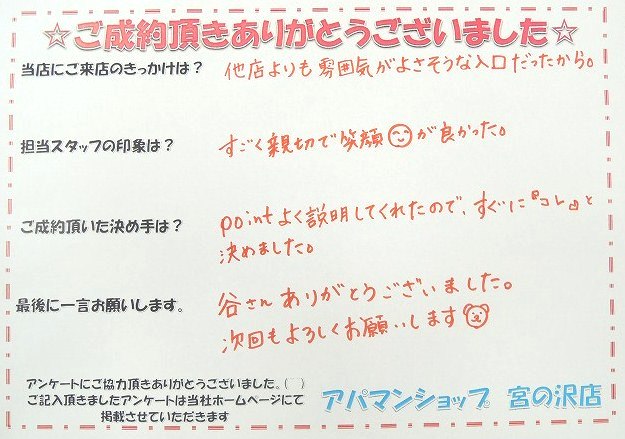 ☆ご成約頂きありがとうございました☆
当店にご来店のきっかけは？
他店よりも雰囲気がよさそうな入口だったから。
担当スタッフの印象は？
すごく親切で笑顔が良かった。
ご成約頂いた決め手は？
pointよく説明してくれたので、すぐに『コレ』と
決めました。
最後に一言お願いします。
谷さんありがとうございました。
次回もよろしくお願いします
アンケートにご協力頂きありがとうございました。(　)
ご記入頂きましたアンケートは当社ホームページにて
掲載させていただきます
アパマンショップ 宮の沢店